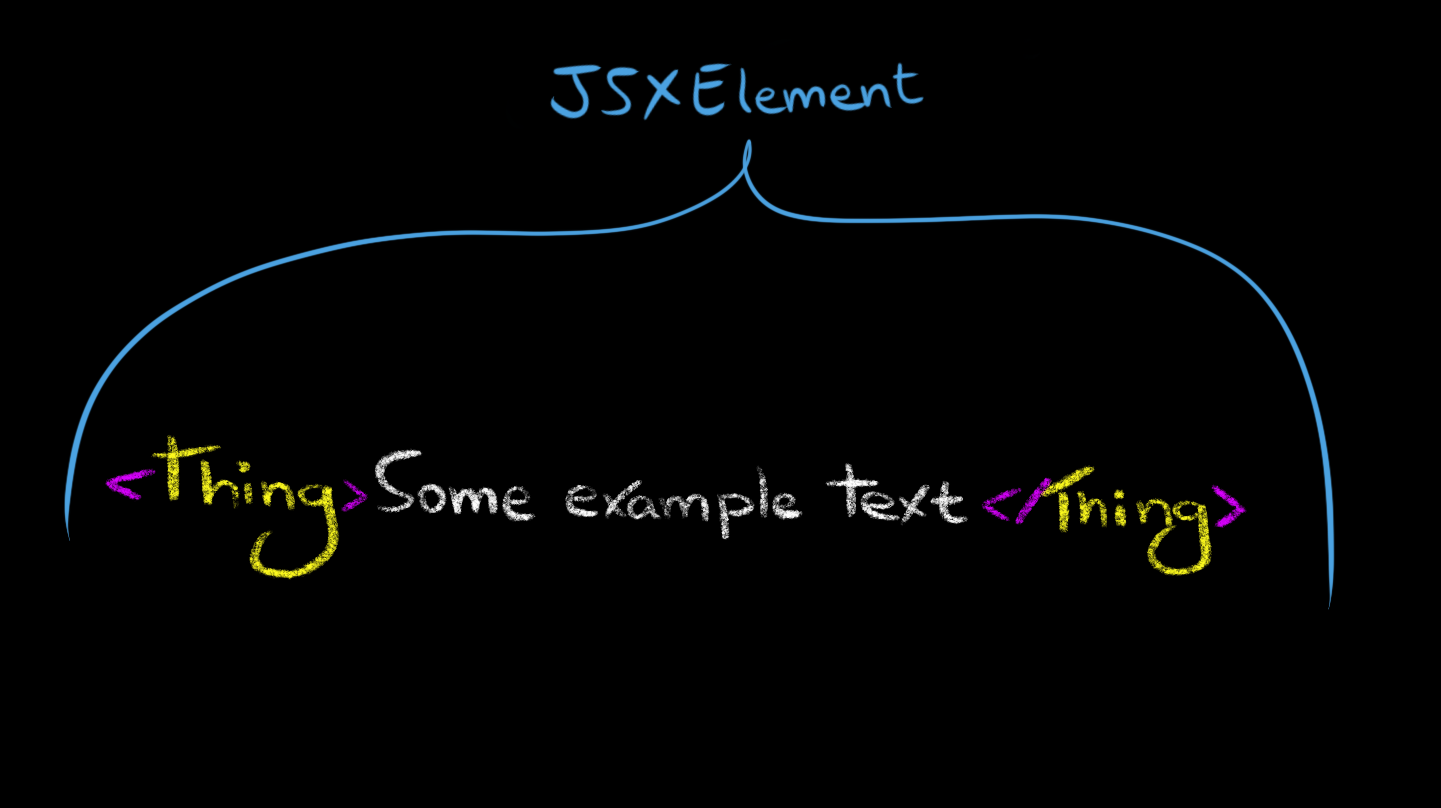 JSXElement
<Thing>Some example text</Thing>